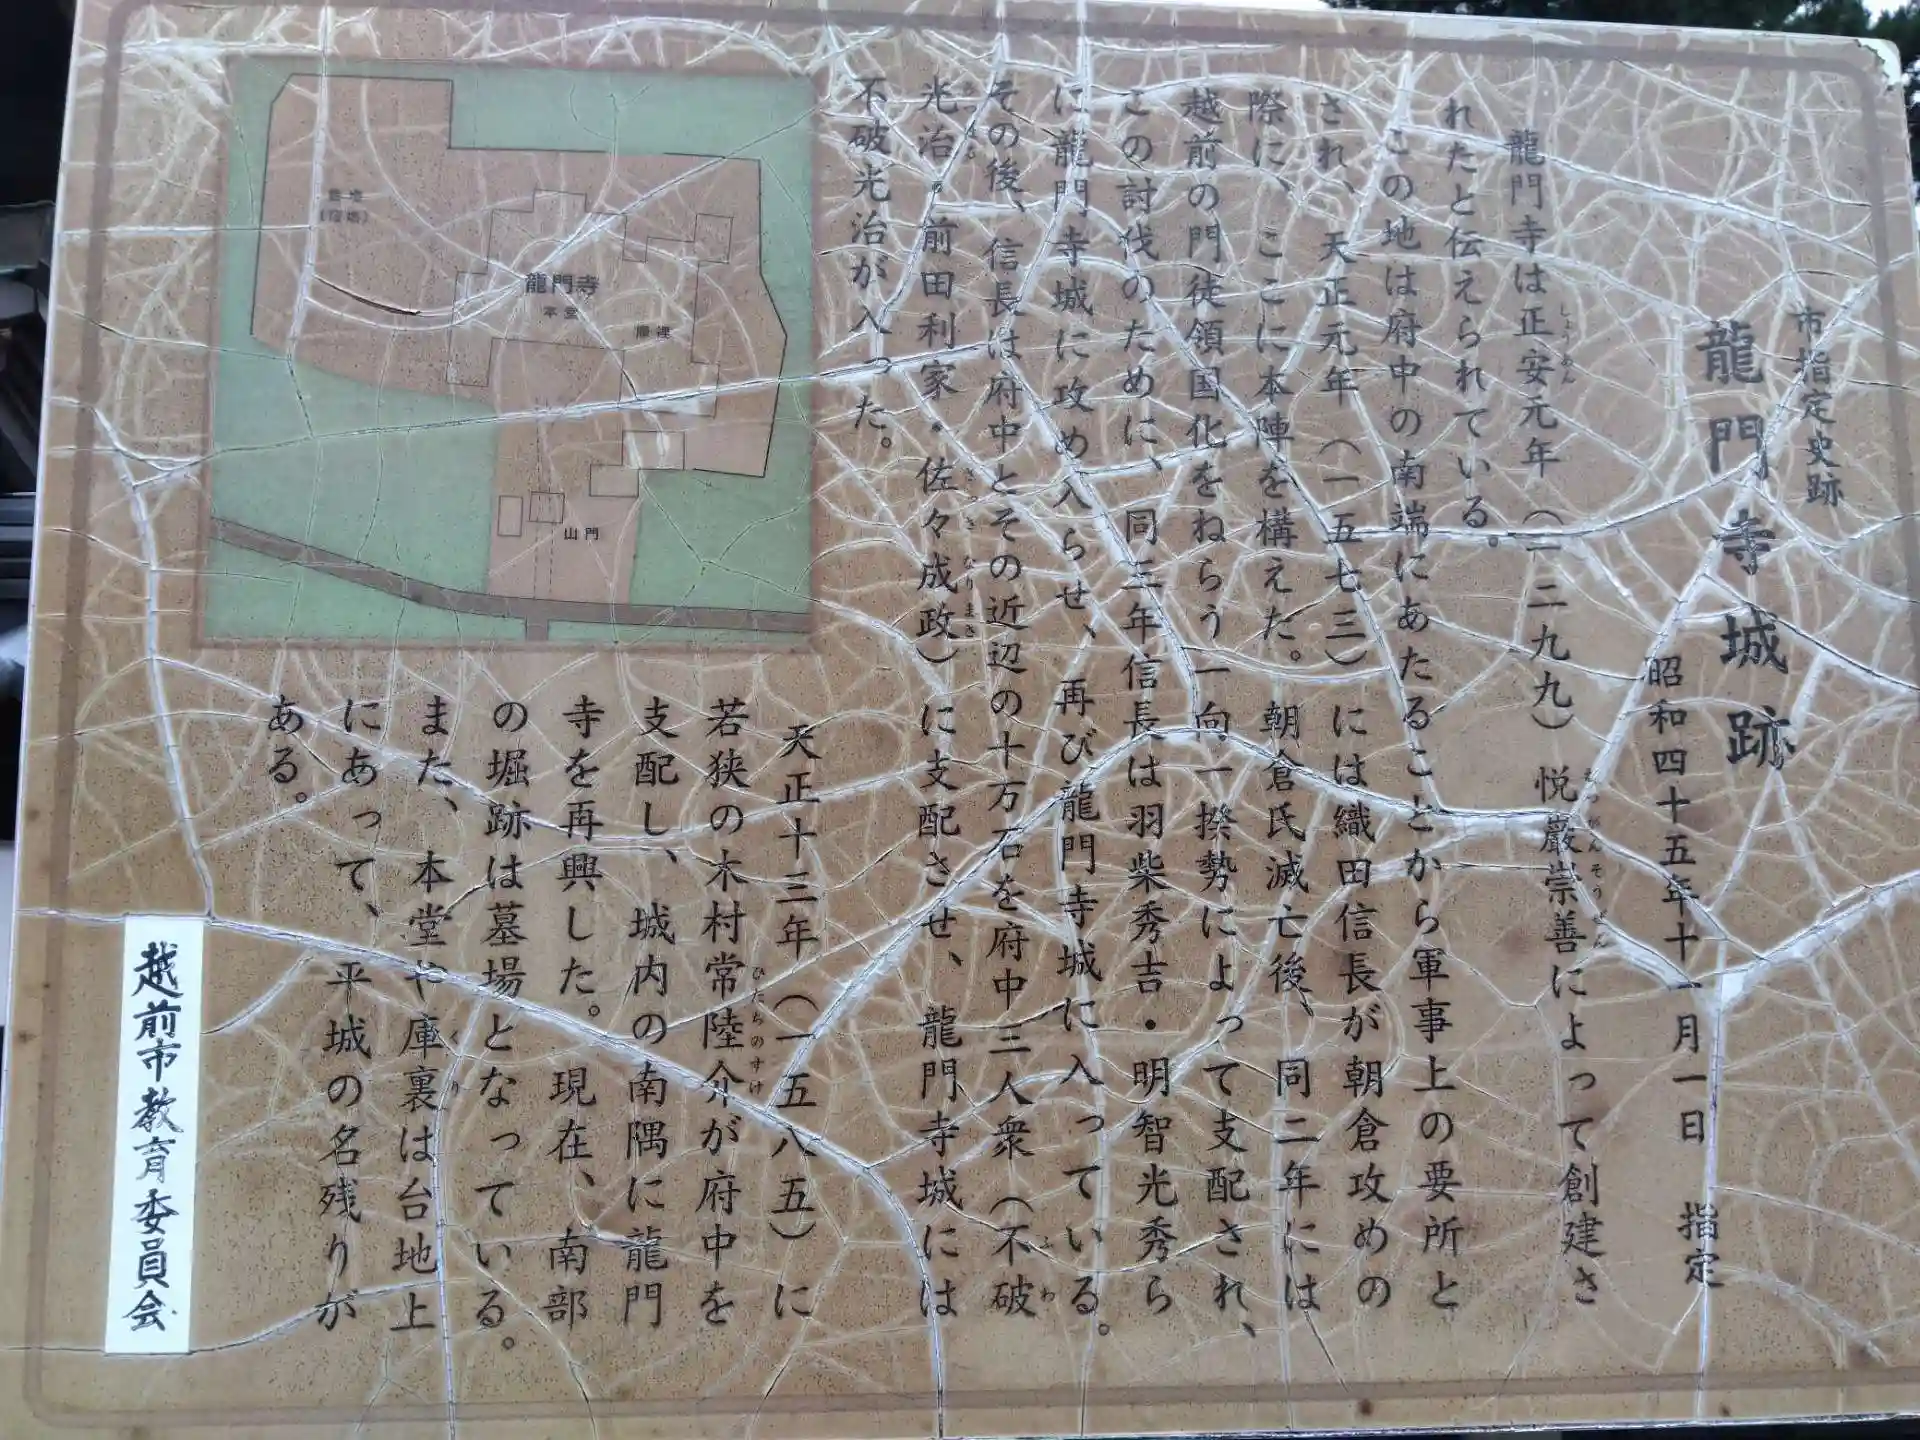 市指定史跡
龍門寺城跡
昭和四十五年十一月一日　指定
龍門寺は正安元年（一二九九）悦巖崇善によって創建さ
しょうあん
えつがんそうぜん
れたと伝えられている。
この地は府中の南端にあたることから軍事上の要所と
され、天正元年（一五七三）には織田信長が朝倉攻めの
際に、ここに本陣を構えた。朝倉氏滅亡後、同二年には
越前の門徒領国化をねらう一向一揆勢によって支配され、
この討伐のために、同三年信長は羽柴秀吉・明智光秀ら
に龍門寺城に攻め入らせ、再び龍門寺城に入っている。
その後、信長は府中とその近辺の十万石を府中三人衆（不破
ふわ
光治・前田利家・佐々成政）に支配させ、龍門寺城には
みつはる
さっさ なりまさ
不破光治が入った。
天正十三年（一五八五）に
若狭の木村常陸介が府中を
ひたちのすけ
支配し、城内の南隅に龍門
寺を再興した。現在、南部
の堀跡は墓場となっている。
また、本堂や庫裏は台地上
くり
にあって、平城の名残りが
ある。
越前市教育委員会
墓地
龍門寺
本堂
庫裡
山門